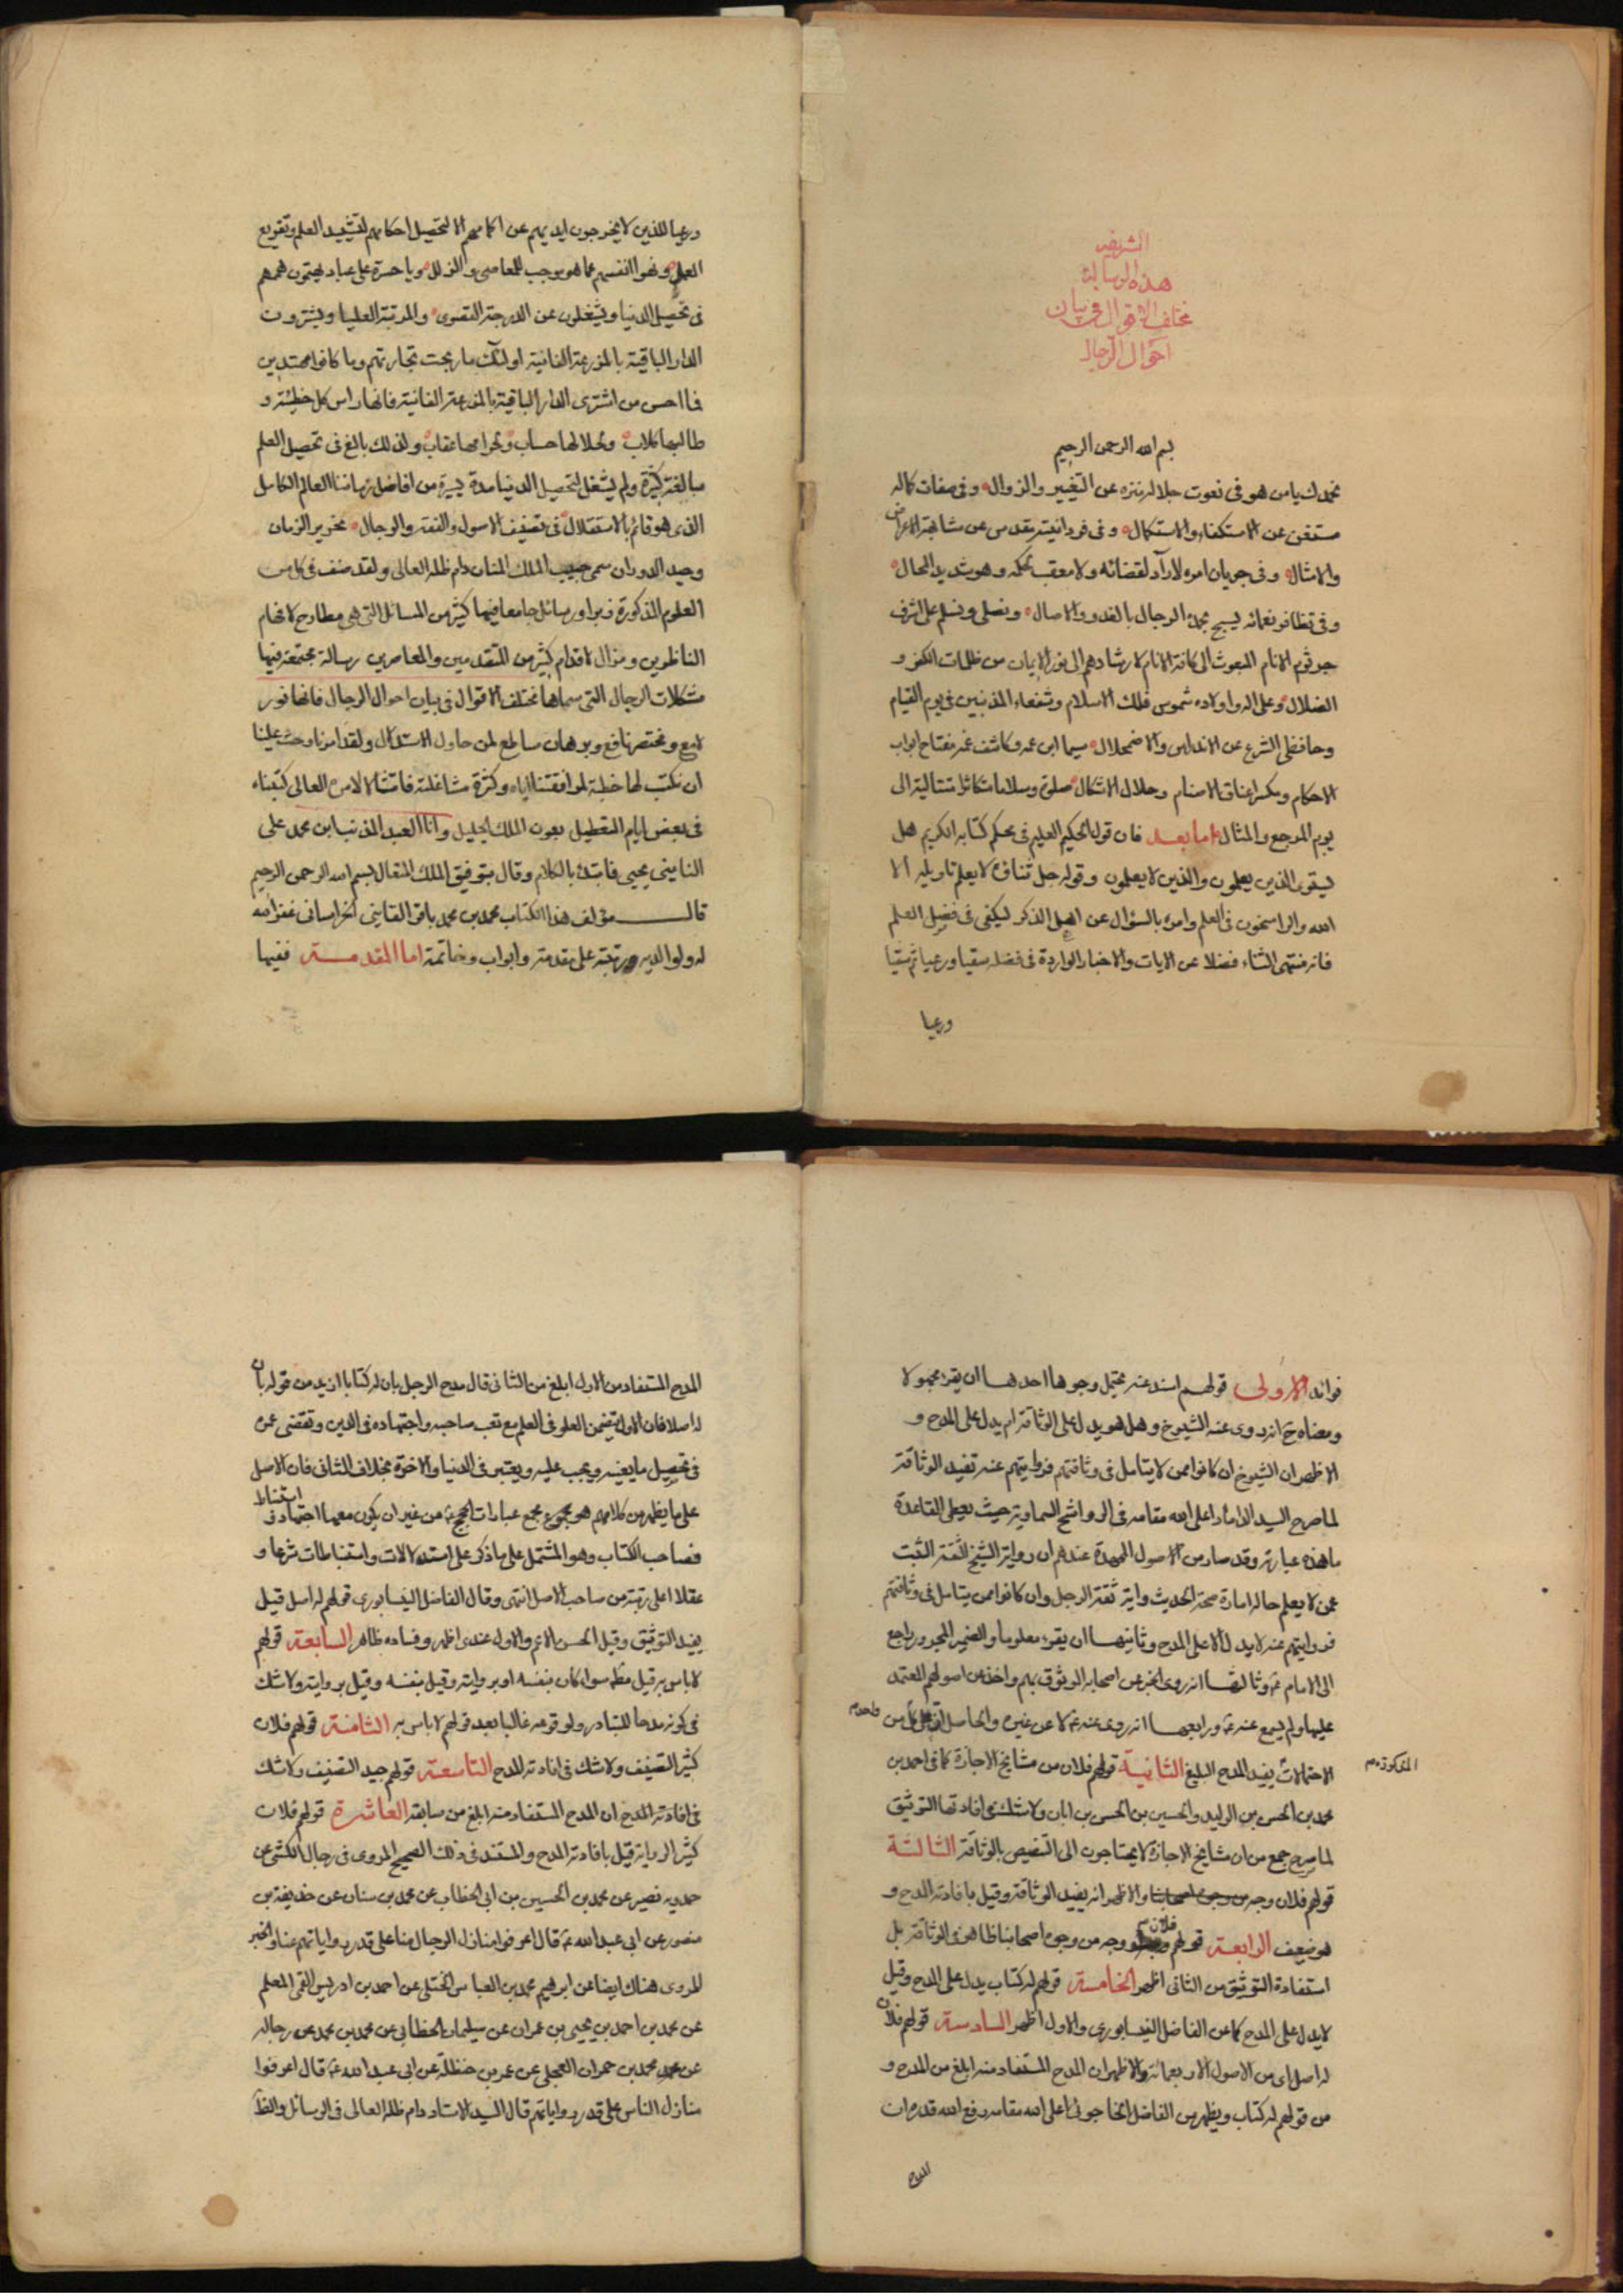 الشريفه
هذه الرسالة
مختلف الاقوال في بيان
احوال الرجال
بسم الله الرحمن الرحيم
نحمدك يا من هو في نعوت جلاله منزه عن التغيير والزوال وفي صفات كماله
مستغن عن الاستكفاء والاستكمال وفي فردانيته مقدس عن مشابهة الاعراض
والامثال وفي جريان امره لا راد لقضائه ولا معقب لحكمه وهو شديد المحال
وفي تظافر نعمائه يسبح بحمده الرجال بالغدو والاصال ونصلي ونسلم على اشرف
جرثوم الانام المبعوث الى كافة الانام لارشادهم الى نور الايمان من ظلمات الكفر و
الضلال وعلى اله واولاده شموس فلك الاسلام وشفعاء المذنبين في يوم القيام
وحافظي الشرع عن الاندراس والاضمحلال سيما ابن عمه وكاشف غمه مفتاح ابواب
الاحكام ومكسر اعناق الاصنام وحلال الاشكال صلوة وسلاما متكاثرا متتالية الى
يوم المرجع والمثال اما بعد فان قول الحكيم العليم في محكم كتابه الكريم هل
يستوى الذين يعلمون والذين لا يعلمون وقوله جل ثناؤه لا يعلم تاويله الا
الله والراسخون في العلم وامره بالسؤال عن اهل الذكر ليكفي في فضل العلم
فانه منتهى الثناء فضلا عن الايات والاخبار الواردة في فضله سقيا ورعيا ثم سقيا
ورعيا
ورعيا للذين لا يخرجون ايديهم عن اكمامهم الا لتحصيل احكامهم لتشييد العلم وتفريع
العمل ونهوا انفسهم عما هو يوجب للمعاصي والزلل ويا حسرة على عباد يهتمون هممهم
في تحصيل الدنيا ويشغلون عن الدرجة القصوى والمرتبة العليا ويشترون
الدار الباقية بالمزرعة الفانية اولئك ما ربحت تجارتهم وما كانوا مهتدين
فما احسن من اشترى الدار الباقية بالمزرعة الفانية فانها راس كل خطيئة و
طالبها كلاب وبحلالها حساب وبحرامها عقاب ولذلك بالغ في تحصيل العلم
مبالغة كثيرة ولم يشغل لتحصيل الدنيا مدة يسيرة من افاضل زماننا العالم الكامل
الذي هو قائم بالاستقلال في تصنيف الاصول والفقه والرجال نحرير الزمان
وحيد الدوران سمي حبيب الملك المنان دام ظله العالى ولقد صنف في كل من
العلوم المذكورة زبرا ورسائل جامعا فيها كثير من المسائل التي هي مطارح لافهام
الناظرين ومزال لاقدام كثير من المتقدمين والمعاصرين رسالة مجتمعة فيها
مشكلات الرجال التي سماها بمختلف الاقوال في بيان احوال الرجال فانها نور
لامع ومختصر نافع وبرهان ساطع لمن حاول الاستدلال ولقد امرنا وحث علينا
ان نكتب لها خطبة لموافقتنا اياه وكثرة مشاغلته فامتثالا لامره العالى كتبناه
في بعض ايام التعطيل بعون الملك الجليل وانا العبد المذنب ابن محمد على
النايني يحيى فابتدء بالكلام وقال بتوفيق الملك المتعال بسم الله الرحمن الرحيم
قال مؤلف هذا الكتاب محمد بن محمد باقر القايني الخراساني غفر الله
له ولوالديه ورتبته على مقدمة وابواب وخاتمة اما المقدمة ففيها
فوائد الاولى قولهم اسند عنه محتمل وجوها احدها ان يقرء مجهولا
ومعناه ح انه روى عنه الشيوخ وهل هو يدل على الوثاقة ام يدل على المدح و
الاظهر ان الشيوخ ان كانوا ممن لا يتامل في وثاقتهم فروايتهم عنه تفيد الوثاقة
لما صرح السيد الداماد اعلى الله مقامه في الرواشح السماوية حيث يعطى القاعدة
ما هذه عبارته وقد صار من الاصول الممهدة عندهم ان رواية الشيخ الثقة الثبت
عمن لا يعلم حاله امارة صحة الحديث واية ثقة الرجل وان كانوا ممن يتامل في وثاقتهم
فروايتهم عنه لا يدل الا على المدح وثانيها ان يقرء معلوما والضمير المجرور راجع
الى الامام ع وثالثها انه روى الخبر عن اصحابه الموثوق بهم واخذ عن اصولهم المعتمد
عليها ولم يسمع عنه ع ورابعها انه روى عنه ع لا عن غيره والحاصل ان على كل من واحد
الاحتمالات يفيد المدح البليغ الثانية قولهم فلان من مشايخ الاجازة كما في احمد بن
المذكورة
محمد بن الحسن بن الوليد والحسين بن الحسن بن ابان ولا شك في افادتها التوثيق
لما صرح جمع من ان مشايخ الاجازة لا يحتاجون الى التنصيص بالوثاقة الثالثة
قولهم فلان وجه من وجوه اصحابنا والاظهر انه يفيد الوثاقة وقيل بافادته المدح و
هو ضعيف الرابعة قولهم فلان وجه من وجوه اصحابنا ظاهر في الوثاقة بل
استفادة التوثيق من الثاني اظهر الخامسة قولهم له كتاب يدل على المدح وقيل
لا يدل على المدح كما عن الفاضل النيسابوري والاول اظهر السادسة قولهم فلان
له اصل اى من الاصول الاربعمائة والاظهر ان المدح المستفاد منه ابلغ من المدح و
من قولهم له كتاب ويظهر من الفاضل الخاجوئي اعلى الله مقامه ورفع الله قدره ان
المدح
المدح المستفاد من الاول ابلغ من الثاني قال مدح الرجل بان له كتابا ازيد من قوله بان
له اصلا فان الاول يتضمن العلو في العلم مع تعب صاحبه واجتهاده في الدين وتفضى عمره
في تحصيل ما يعنيه ويجب عليه ويعتبر في الدنيا والاخرة بخلاف الثاني فان الاصل
على ما يظهر من كلامهم هو مجموع مجمع عبارات الحجج ع من غير ان يكون معها اجتهاد و استنباط
فصاحب الكتاب وهو المشتمل على ما ذكر على استدلالات واستنباطات شرعا و
عقلا اعلى رتبة من صاحب الاصل انتهى وقال الفاضل النيسابوري قولهم له اصل قيل
يفيد التوثيق وقيل الحسن الاعم والاول عندي اظهر وفساده ظاهر السابعة قولهم
لا باس به قيل مطلقا سواء كان بنفسه او بروايته وقيل بنفسه وقيل بروايته ولا شك
في كونه مدحا للتبادر ولوقوعه غالبا بعد قولهم لا باس به الثامنة قولهم فلان
كثير التصنيف ولا شك في افادته للمدح التاسعة قولهم جيد التصنيف ولا شك
في افادته المدح ان المدح المستفاد منه ابلغ من سابقه العاشرة قولهم فلان
كثير الرواية قيل بافادته المدح والمستند في ذلك الصحيح المروى في رجال الكشي عن
حمدويه نصير عن محمد بن الحسين بن ابي الخطاب عن محمد بن سنان عن حذيفة بن
منصور عن ابي عبد الله ع قال اعرفوا منازل الرجال منا على قدر رواياتهم عنا والخبر
المروى هناك ايضا عن ابرهيم محمد بن العباس الختلي عن احمد بن ادريس القمي المعلم
عن محمد بن احمد بن يحيى بن عمران عن سليمان الخطابي عن محمد بن محمد عن رجاله
عن محمد بن حمران العجلي عن عمر بن حنظلة عن ابي عبد الله ع قال اعرفوا
منازل الناس على قدر رواياتهم قال السيد الاستاد دام ظله العالى في الرسائل والظ